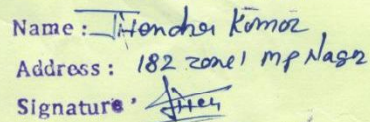 Name: Jitender Kumar
Address: 182 zone 1 mp Nagar
Signature: Jiten